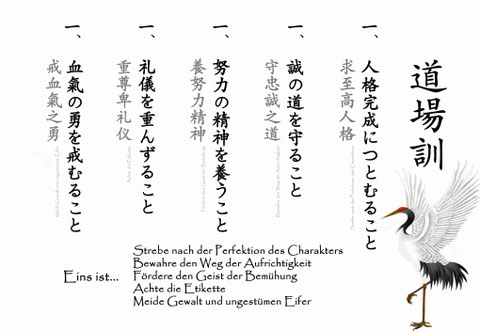 道場訓
一、人格完成につとむること
求至高人格
一、誠の道を守ること
守忠誠之道
一、努力の精神を養うこと
養努力精神
一、礼儀を重んずること
重尊卑礼仪
一、血氣の勇を戒むること
戒血氣之勇
Eins ist...
Strebe nach der Perfektion des Charakters
Bewahre den Weg der Aufrichtigkeit
Fördere den Geist der Bemühung
Achte die Etikette
Meide Gewalt und ungestümen Eifer